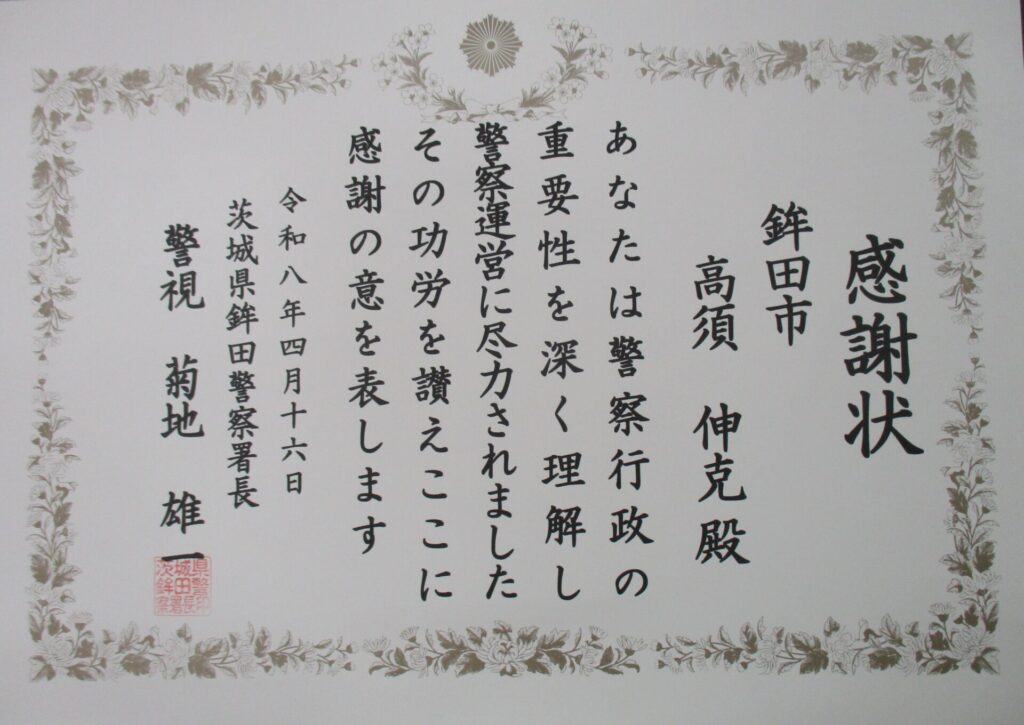 感謝状
鉾田市
高須 伸克殿
あなたは警察行政の
重要性を深く理解し
警察運営に尽力されました
その功労を讃えここに
感謝の意を表します
令和八年四月十六日
茨城県鉾田警察署長
警視 菊地 雄一